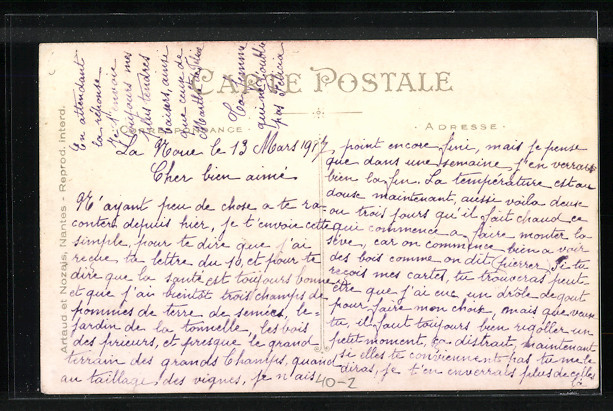 CARTE POSTALE
CORRESPONDANCE
ADRESSE
Artaud et Nozais, Nantes - Reprod. Interd.
La Noue le 13 Mars 1917
Cher bien aimé
N'ayant peu de chose a te ra-
conter depuis hier, je t'envoie cette
simple, pour te dire que j'ai
reçue ta lettre du 10 et pour te
dire que la santé est toujours bonne
et que j'ai bientôt trois champs de
pommes de terre de semées, le
jardin de la tonnelle, les bois
des prieurs, et presque le grand
terrain des grands Champs, quand
au taillage des vignes, je n'ais
point encore fini, mais je pense
que dans une semaine j'en verrais
bien la fin. La température est au
douse maintenant, aussi voila deux
ou trois jours qu'il fait chaud ce
qui commence a faire monter la
sève, car on commence bien a voir
des bois comme on dit (pierrer) Si tu
reçois mes cartes, tu trouveras peut
être que j'ai eue un drôle de gout
pour faire mon choix, mais que veux
tu, il faut toujours bien rigoller un
petit moment, ça distrait, maintenant
si elles te conviennent pas tu me le
diras, je t'en enverrais plus de celles
En attendant
ta réponse
je t'envoie
toujours mes
plus tendres
baisers ainsi
que ceux de
Ta femme
qui ne t'oublie
pas Felicia
40-2